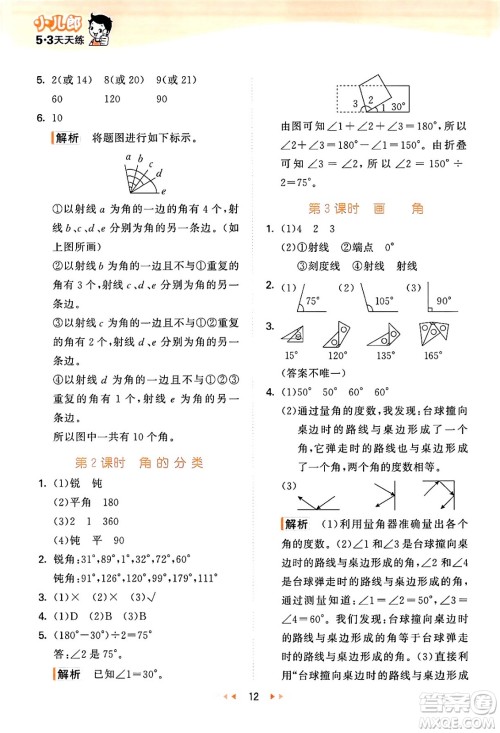 小儿郎
5·3天天练
5. 2(或 14) 8(或 20) 9(或 21)
60 120 90
6. 10
解析 将题图进行如下标示。
a
b
c
d
e
①以射线 a 为角的一边的角有 4 个，射
线 b、c、d、e 为角的另一条边。(如
上图所画)
②以射线 b 为角的一边且不与①重复的
角有 3 个，射线 c、d、e 为角的另一
条边。
③以射线 c 为角的一边且不与①②重复
的角有 2 个，射线 d、e 为角的另一
条边。
④以射线 d 为角的一边且不与①②③重
复的角有 1 个，射线 e 为角的另一条
边。
所以图中一共有 10 个角。
第 2 课时 角的分类
1. (1)锐 钝
(2)平角 180
(3)2 1 360
(4)钝 平 90
2. 锐角:31°,89°,1°,32°,83°
钝角:91°,178°,97°,116°
3. (1)× (2)× (3)√
4. (1)D (2)D (3)B
5. (180°－30°)÷2＝75°
解析 已知∠1＝30°。
3 2 1 30°
由图可知∠1＋∠2＋∠3＝180°，所以
∠2＋∠3＝180°－∠1＝150°。由折叠
可知∠2＝∠3，所以∠2＝150°÷
2＝75°。
第 3 课时 画 角
1. (1)4 2 3
(2)①射线 ②端点 0°
③刻度线 ④射线
2. (1) 75° (2) 105° (3) 90°
3.
15° 120° 135° 165°
(答案不唯一)
4. (1)50° 50° 60° 60°
(2)通过量角的度数，我发现：台球撞向
桌边时的路线与桌边形成了一个
角，它弹走时的路线也与桌边形成
了一个角，两个角的度数相等。
(3)
解析 (1)利用量角器准确量出各个
角的度数。(2)台球撞向桌边和弹走
时的路线与桌边形成的角有关系，通
过测量知道，∠1＝∠2，∠3＝∠4，所
以台球撞向桌边时的路线与桌边形
成的角的度数等于台球弹走时的路
线与桌边形成的角的度数。(3)根据
台球撞向桌边时的路线与桌边形成
12